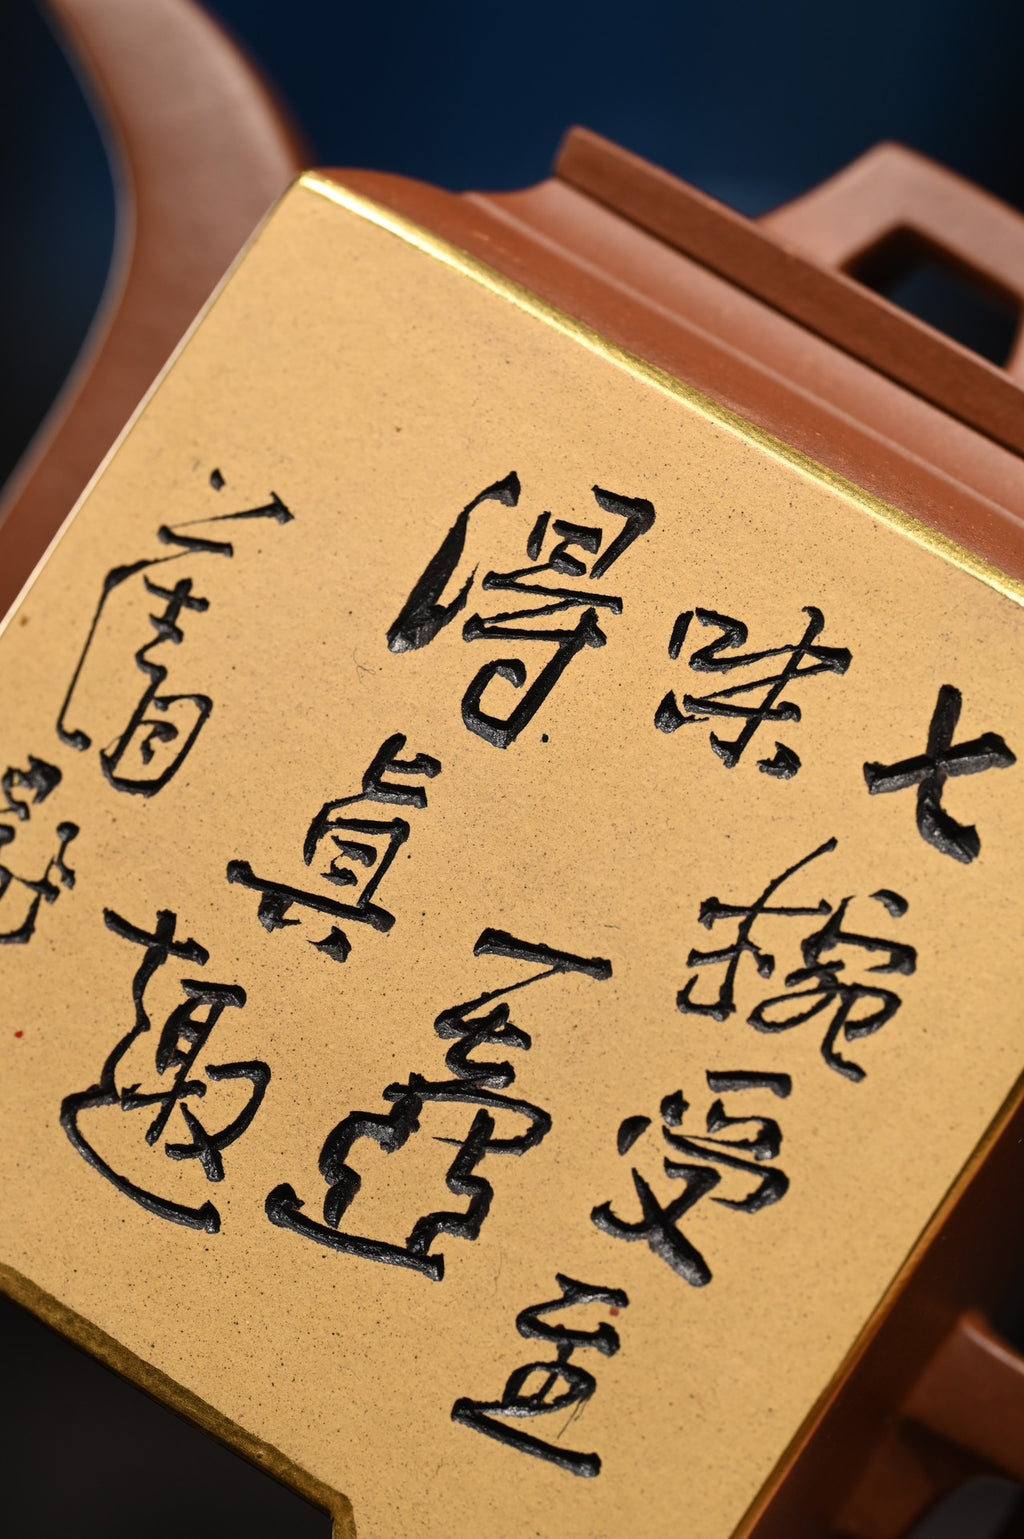 七碗受至
味一壺
得真趣